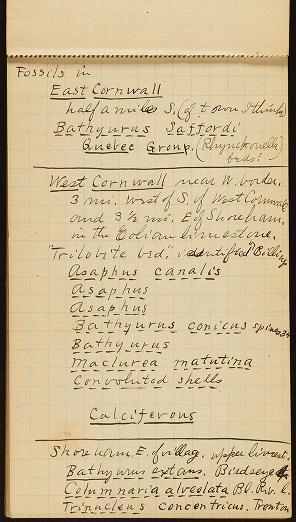 Fossils in
East Cornwall
half a mile S. (of town I think)
Bathyurus Saffordi
Quebec Group. (Rhynchonella beds?
West Cornwall near W. border.
3 mi. west of S. of West Cornwall
and 3 1/2 mi. E of Shoreham.
in the Eolian limestone.
"Trilobite bed", identified Billings
Asaphus canalis
Asaphus
Asaphus
Bathyurus conicus
Bathyurus
Maclurea matutina
Convoluted shells
Calciferous
Shoreham. E. of villag. upper limest.
Bathyurus extans. Birdseye
Columnaria alveolata Bl. Riv. l.
Trinucleus concentricus. Trenton